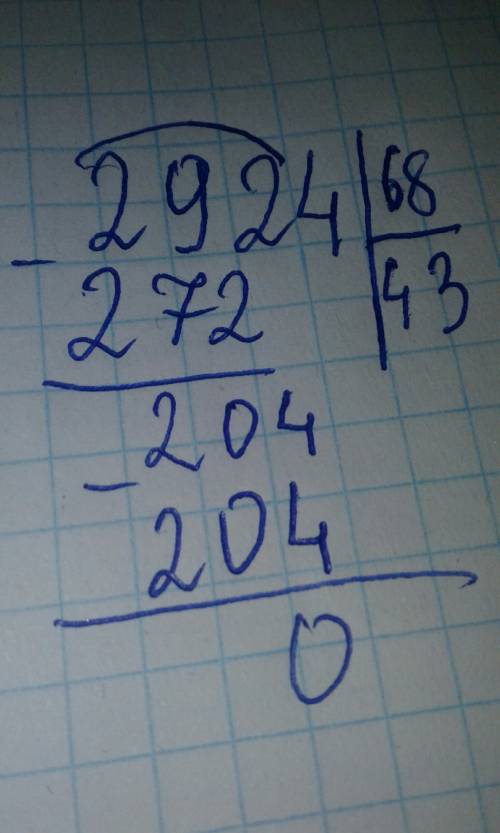 2924 | 68
- 272 | 43
204
- 204
0